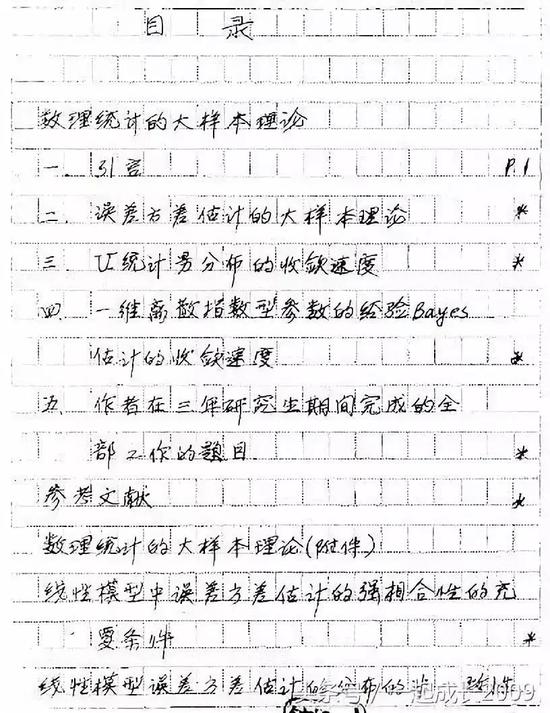 目 录
数理统计的大样本理论
一. 引言 P.1
二. 误差方差估计的大样本理论 *
三. U统计量分布的收敛速度 *
四. 一维离散指数型参数的经验Bayes
估计的收敛速度 *
五. 作者在三年研究生期间完成的全
部工作的题目. *
参考文献 *
数理统计的大样本理论(附件)
线性模型中误差方差估计的强相合性的充
要条件 *
线性模型误差方差估计的分布的
一起成长2009